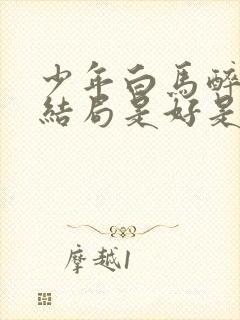 少年白馬醉
結局是好是
摩越1